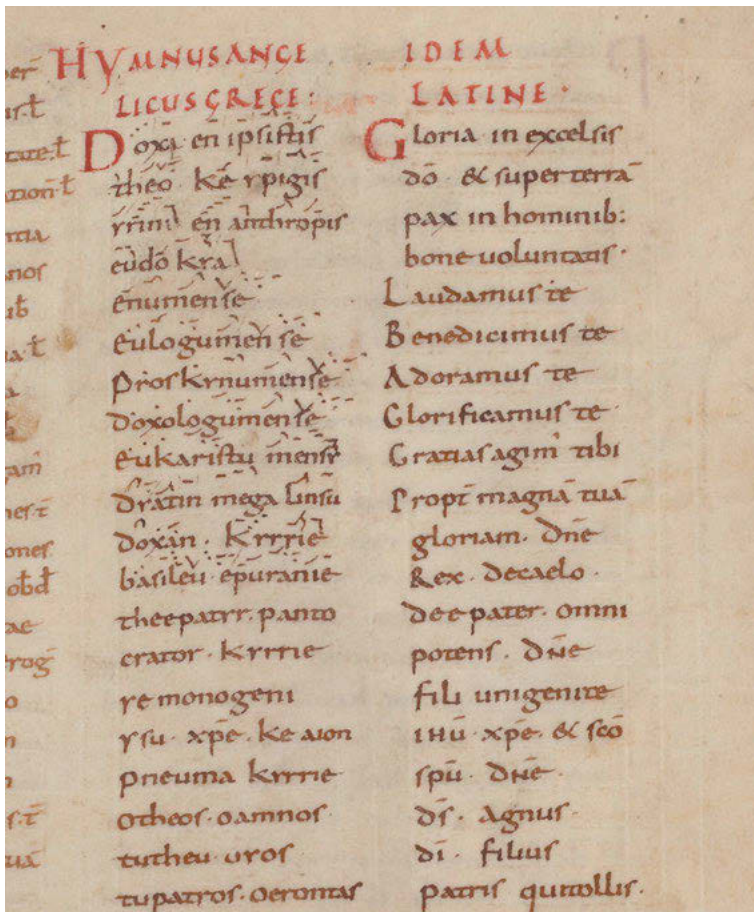 HYMNUS ANGE
LICUS GRECE:
Doxa en ipsistis
theo ke ypigis
yrini en anthropis
eudo kya
enumen se
eulogumen se
proskynumen se
doxologumen se
eukaristu men se
dia tin mega lin su
doxan. Kyrie
basileu epuranie
thee patyr. panto
crator. Kyrie
ye monogeni
ysu. xpē. ke aion
pneuma kyrie
otheos. oamnos
tutheu. uros
tupatros. oerontas
IDEM
LATINE.
Gloria in excelsis
dō. & super terrā
pax in hominib:
bone voluntatis.
Laudamus te
Benedicimus te
Adoramus te
Glorificamus te
Gratias agim tibi
Propt magnā tuā
gloriam. dñe
Rex. decaelo.
dee pater. omni
potens. dñe
fili unigenite
ihū. xpē. & scō
spū. dñe.
ds. agnus.
di. filius
patris quitollis.